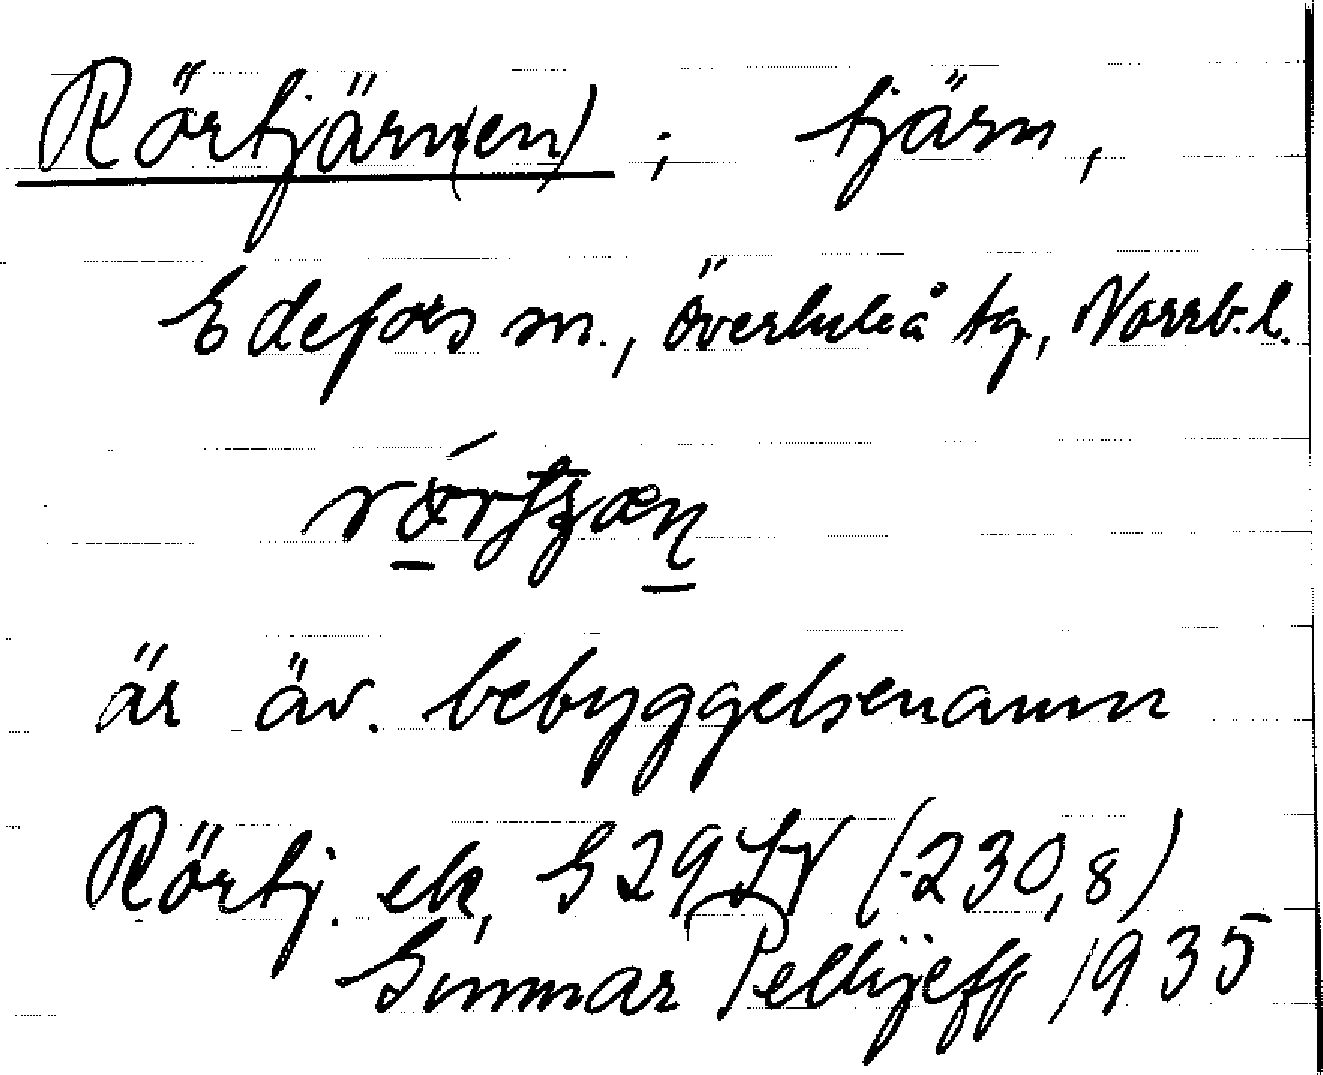 Rörtjärn(en); tjärn,
Edefors sn., Överluleå tg, Norrb. l.
är äv. bebyggelsenamn
Rörtj. ek, G 29 (-230,8)
Gunnar Pellijeff 1935